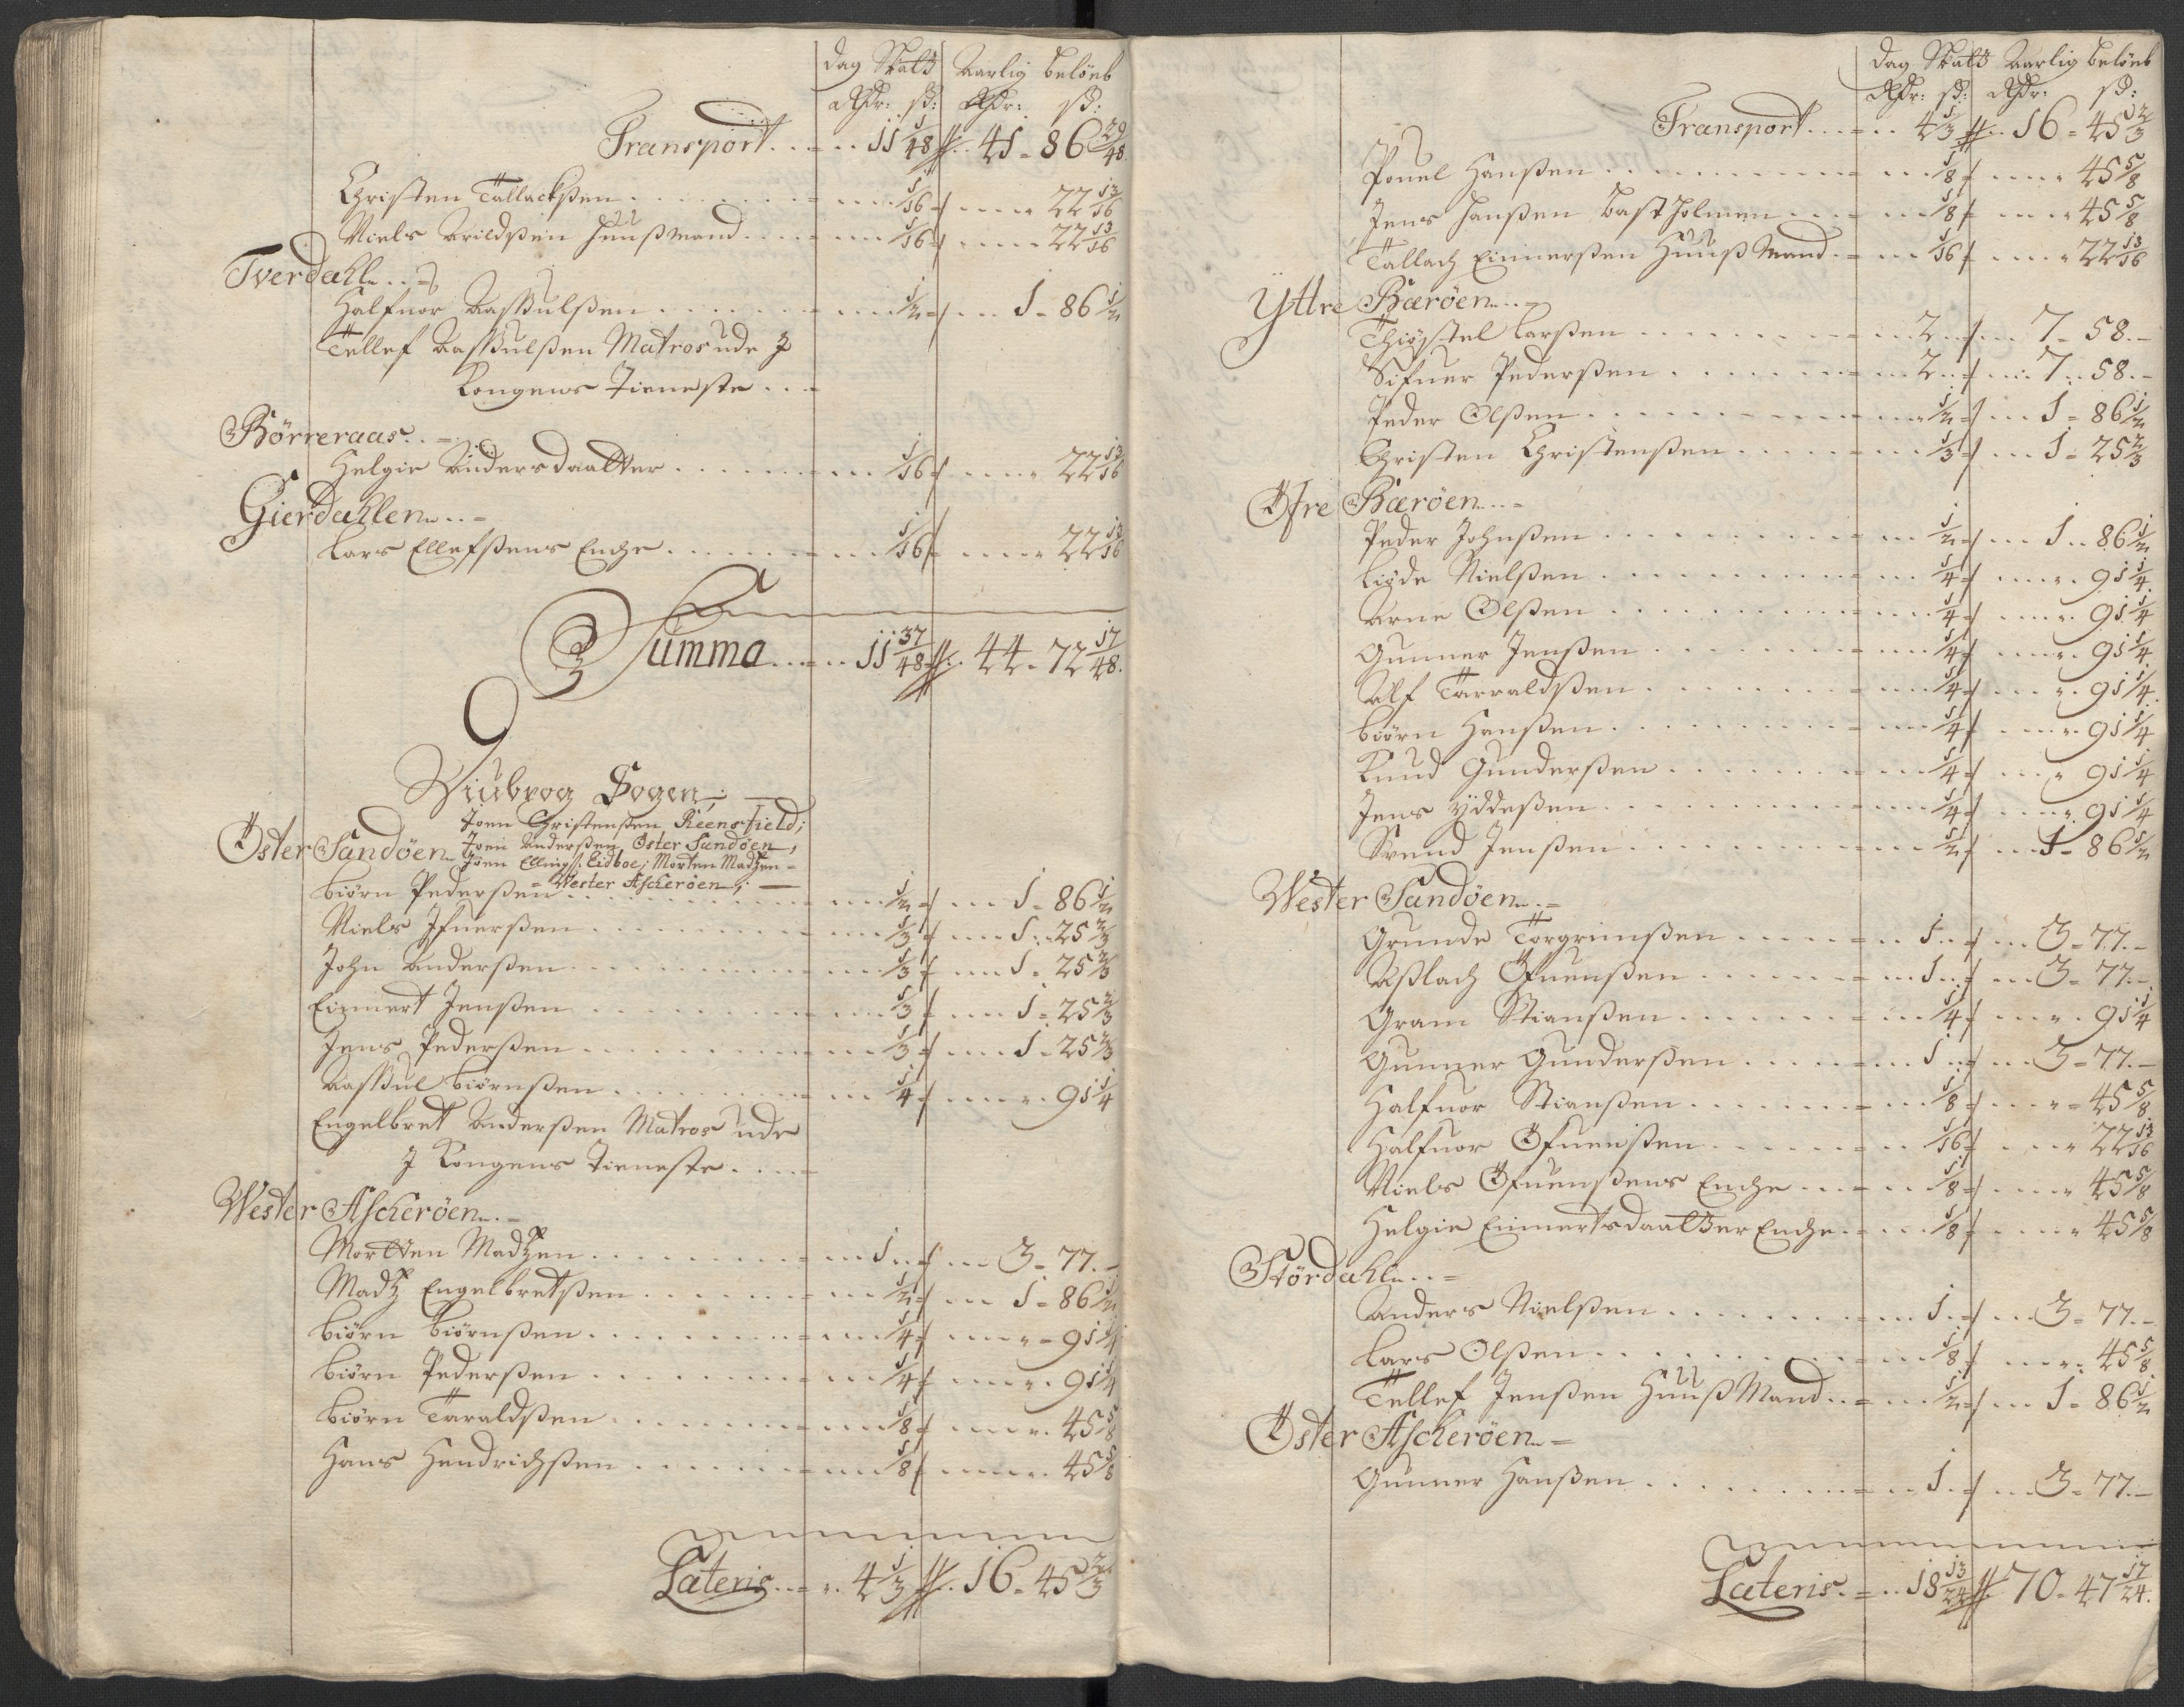 Dag Skatt Aarlig beløeb
Rdr: sk: Rdr: sk:
Transport . . 11 1/48 41 - 86 29/48
Christen Tallackßen . . 1/16 22 13/16
Niels Arildßen Huußmand . . 1/16 22 13/16
Tverdahl
Halfuor Aassulßen . . 1/2 1 - 86 1/2
Tellef Aassulßen Matros ude J
Kongens Tieneste . .
Børreraas
Helgie Andersdaatter . . 1/16 22 13/16
Gierdahlen
Lars Ellefßens Enche . . 1/16 22 13/16
Summa . . 11 37/48 44 - 72 17/48
Joen Christensen Reensfield;
Joen Anderßen Øster Sandøen,
Øster Sandøen
Joen Ellingß. Eidboe; Morten Madtzen -
= Vester Ascherøen;
Biørn Pederßen . . 1/2 1 - 86 1/2
Niels Ifuerßen . . 1/3 1 - 25 2/3
John Anderßen . . 1/3 1 - 25 2/3
Einnert Jenßen . . 1/3 1 - 25 2/3
Jens Pederßen . . 1/3 1 - 25 2/3
Aassul Biørnßen . . 1/4 91 1/4
Engelbret Anderßen Matros ude
J Kongens Tieneste . .
Wester Ascherøen
Mortten Madtzen . . 1 3 - 77 -
Madtz Engelbretßen . . 1/2 1 - 86 1/2
Biørn Biørnßen . . 1/4 91 1/4
Biørn Pederßen . . 1/4 91 1/4
Biørn Taraldßen . . 1/8 45 5/8
Hans Hendrichßen . . 1/8 45 5/8
Lateris . . 4 1/3 16 - 45 2/3
Dag Skatt Aarlig beløeb
Rdr: sk: Rdr: sk:
Transport . . 4 1/3 16 - 45 2/3
Pouel Hanßen . . 1/8 45 5/8
Jens Hanßen Bastholmen . . 1/8 45 5/8
Tallach Einnerßen Huuß Mand . . 1/16 22 13/16
Yttre Bærøen
Thiøstel Larßen . . 2 7 - 58 -
Sifuer Pederßen . . 2 7 - 58 -
Peder Olßen . . 1/2 1 - 86 1/2
Christen Christenßen . . 1/3 1 - 25 2/3
Øfre Bærøen
Peder Johnßen . . 1/2 1 - 86 1/2
Liøde Nielßen . . 1/4 91 1/4
Arne Olßen . . 1/4 91 1/4
Gunner Jenßen . . 1/4 91 1/4
Alf Tarraldßen . . 1/4 91 1/4
Biørn Hanßen . . 1/4 91 1/4
Knud Gunderßen . . 1/4 91 1/4
Jens Yddeßen . . 1/4 91 1/4
Svend Jenßen . . 1/2 1 - 86 1/2
Wester Sandøen
Grunde Torgrimßen . . 1 3 - 77 -
Aßlach Øfuenßen . . 1 3 - 77 -
Gram Stianßen . . 1/4 91 1/4
Gunner Gunderßen . . 1 3 - 77 -
Halfuor Stianßen . . 1/8 45 5/8
Halfuor Øfuenßen . . 1/16 22 13/16
Niels Øfuenßens Enche . . 1/8 45 5/8
Helgie Einnertsdaatter Enche . . 1/8 45 5/8
Størdahl
Anders Nielßen . . 1 3 - 77 -
Lars Olßen . . 1/8 45 5/8
Tellef Jenßen Huuß Mand . . 1/2 1 - 86 1/2
Øster Ascherøen
Gunner Hanßen . . 1 3 - 77 -
Lateris . . 18 13/24 70 - 47 17/24